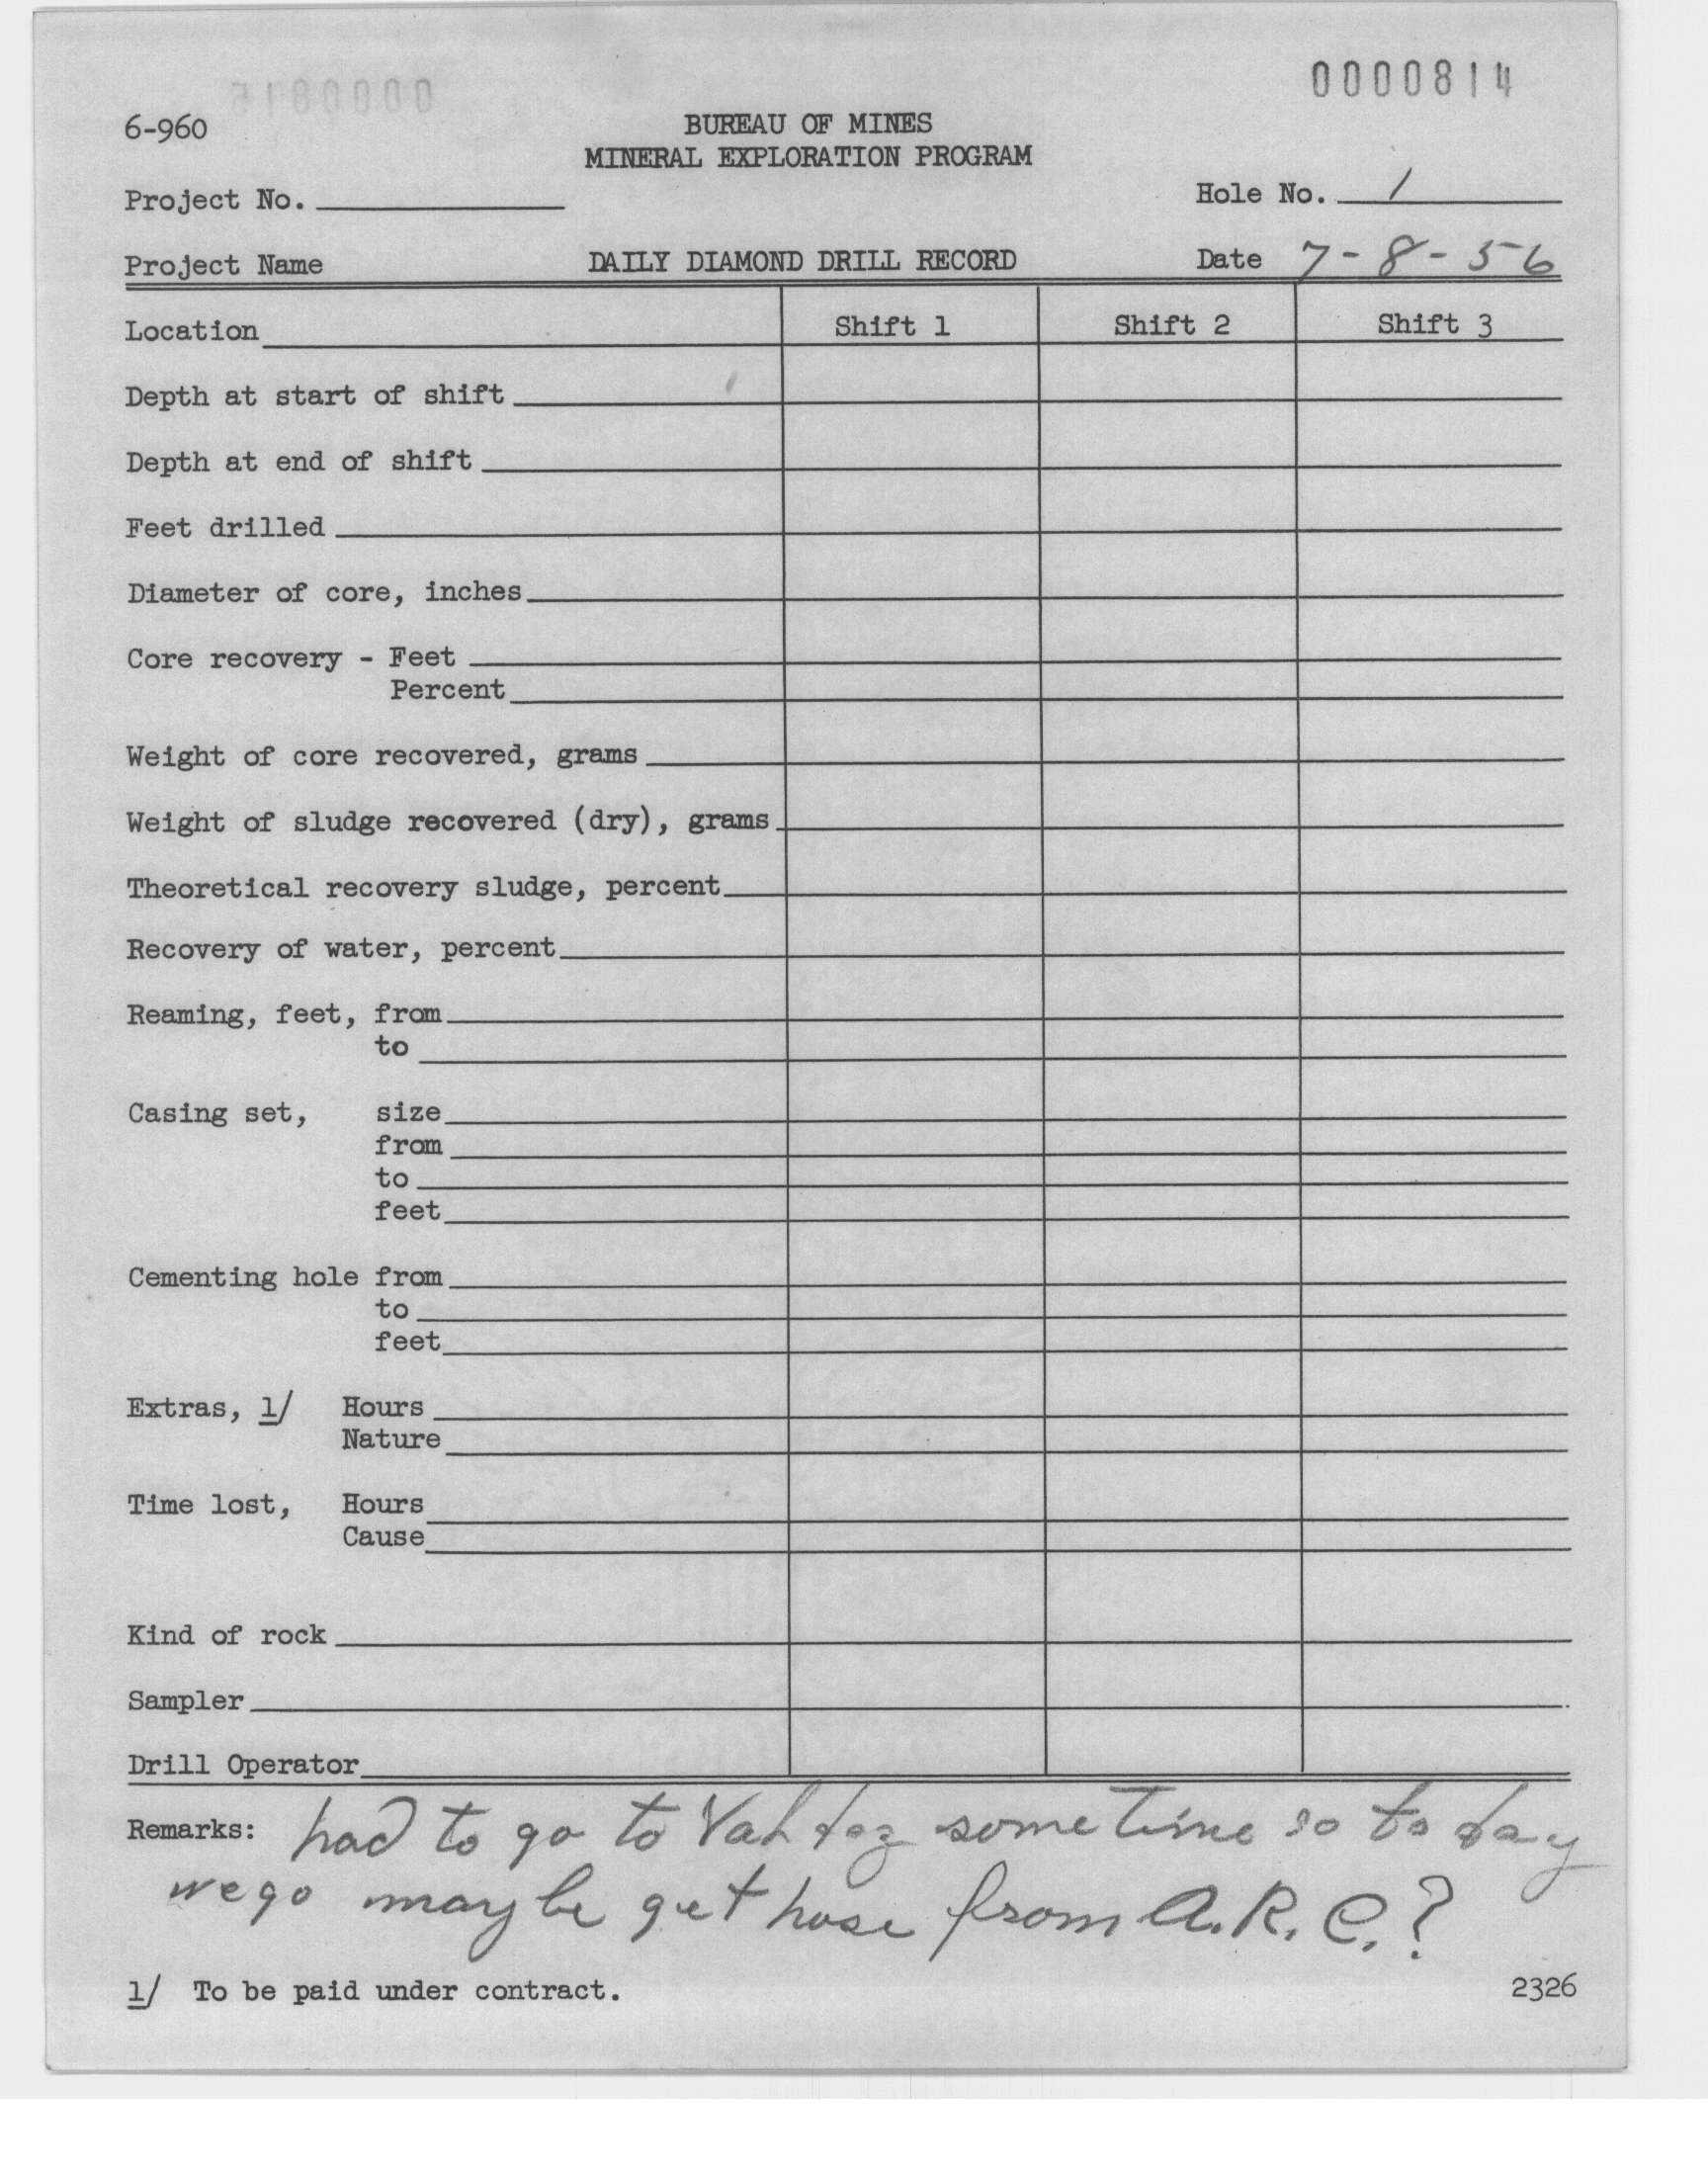 0000815
0000814
6-960
BUREAU OF MINES
MINERAL EXPLORATION PROGRAM
Project No.
Hole No. 1
Project Name
DAILY DIAMOND DRILL RECORD
Date 7-8-56
Location
Shift 1
Shift 2
Shift 3
Depth at start of shift
Depth at end of shift
Feet drilled
Diameter of core, inches
Core recovery - Feet
Percent
Weight of core recovered, grams
Weight of sludge recovered (dry), grams
Theoretical recovery sludge, percent
Recovery of water, percent
Reaming, feet, from
to
Casing set, size
from
to
feet
Cementing hole from
to
feet
Extras, 1/ Hours
Nature
Time lost, Hours
Cause
Kind of rock
Sampler
Drill Operator
Remarks: had to go to Vahdez some time so to day
we go maybe get hose from A.R.C.?
1/ To be paid under contract.
2326